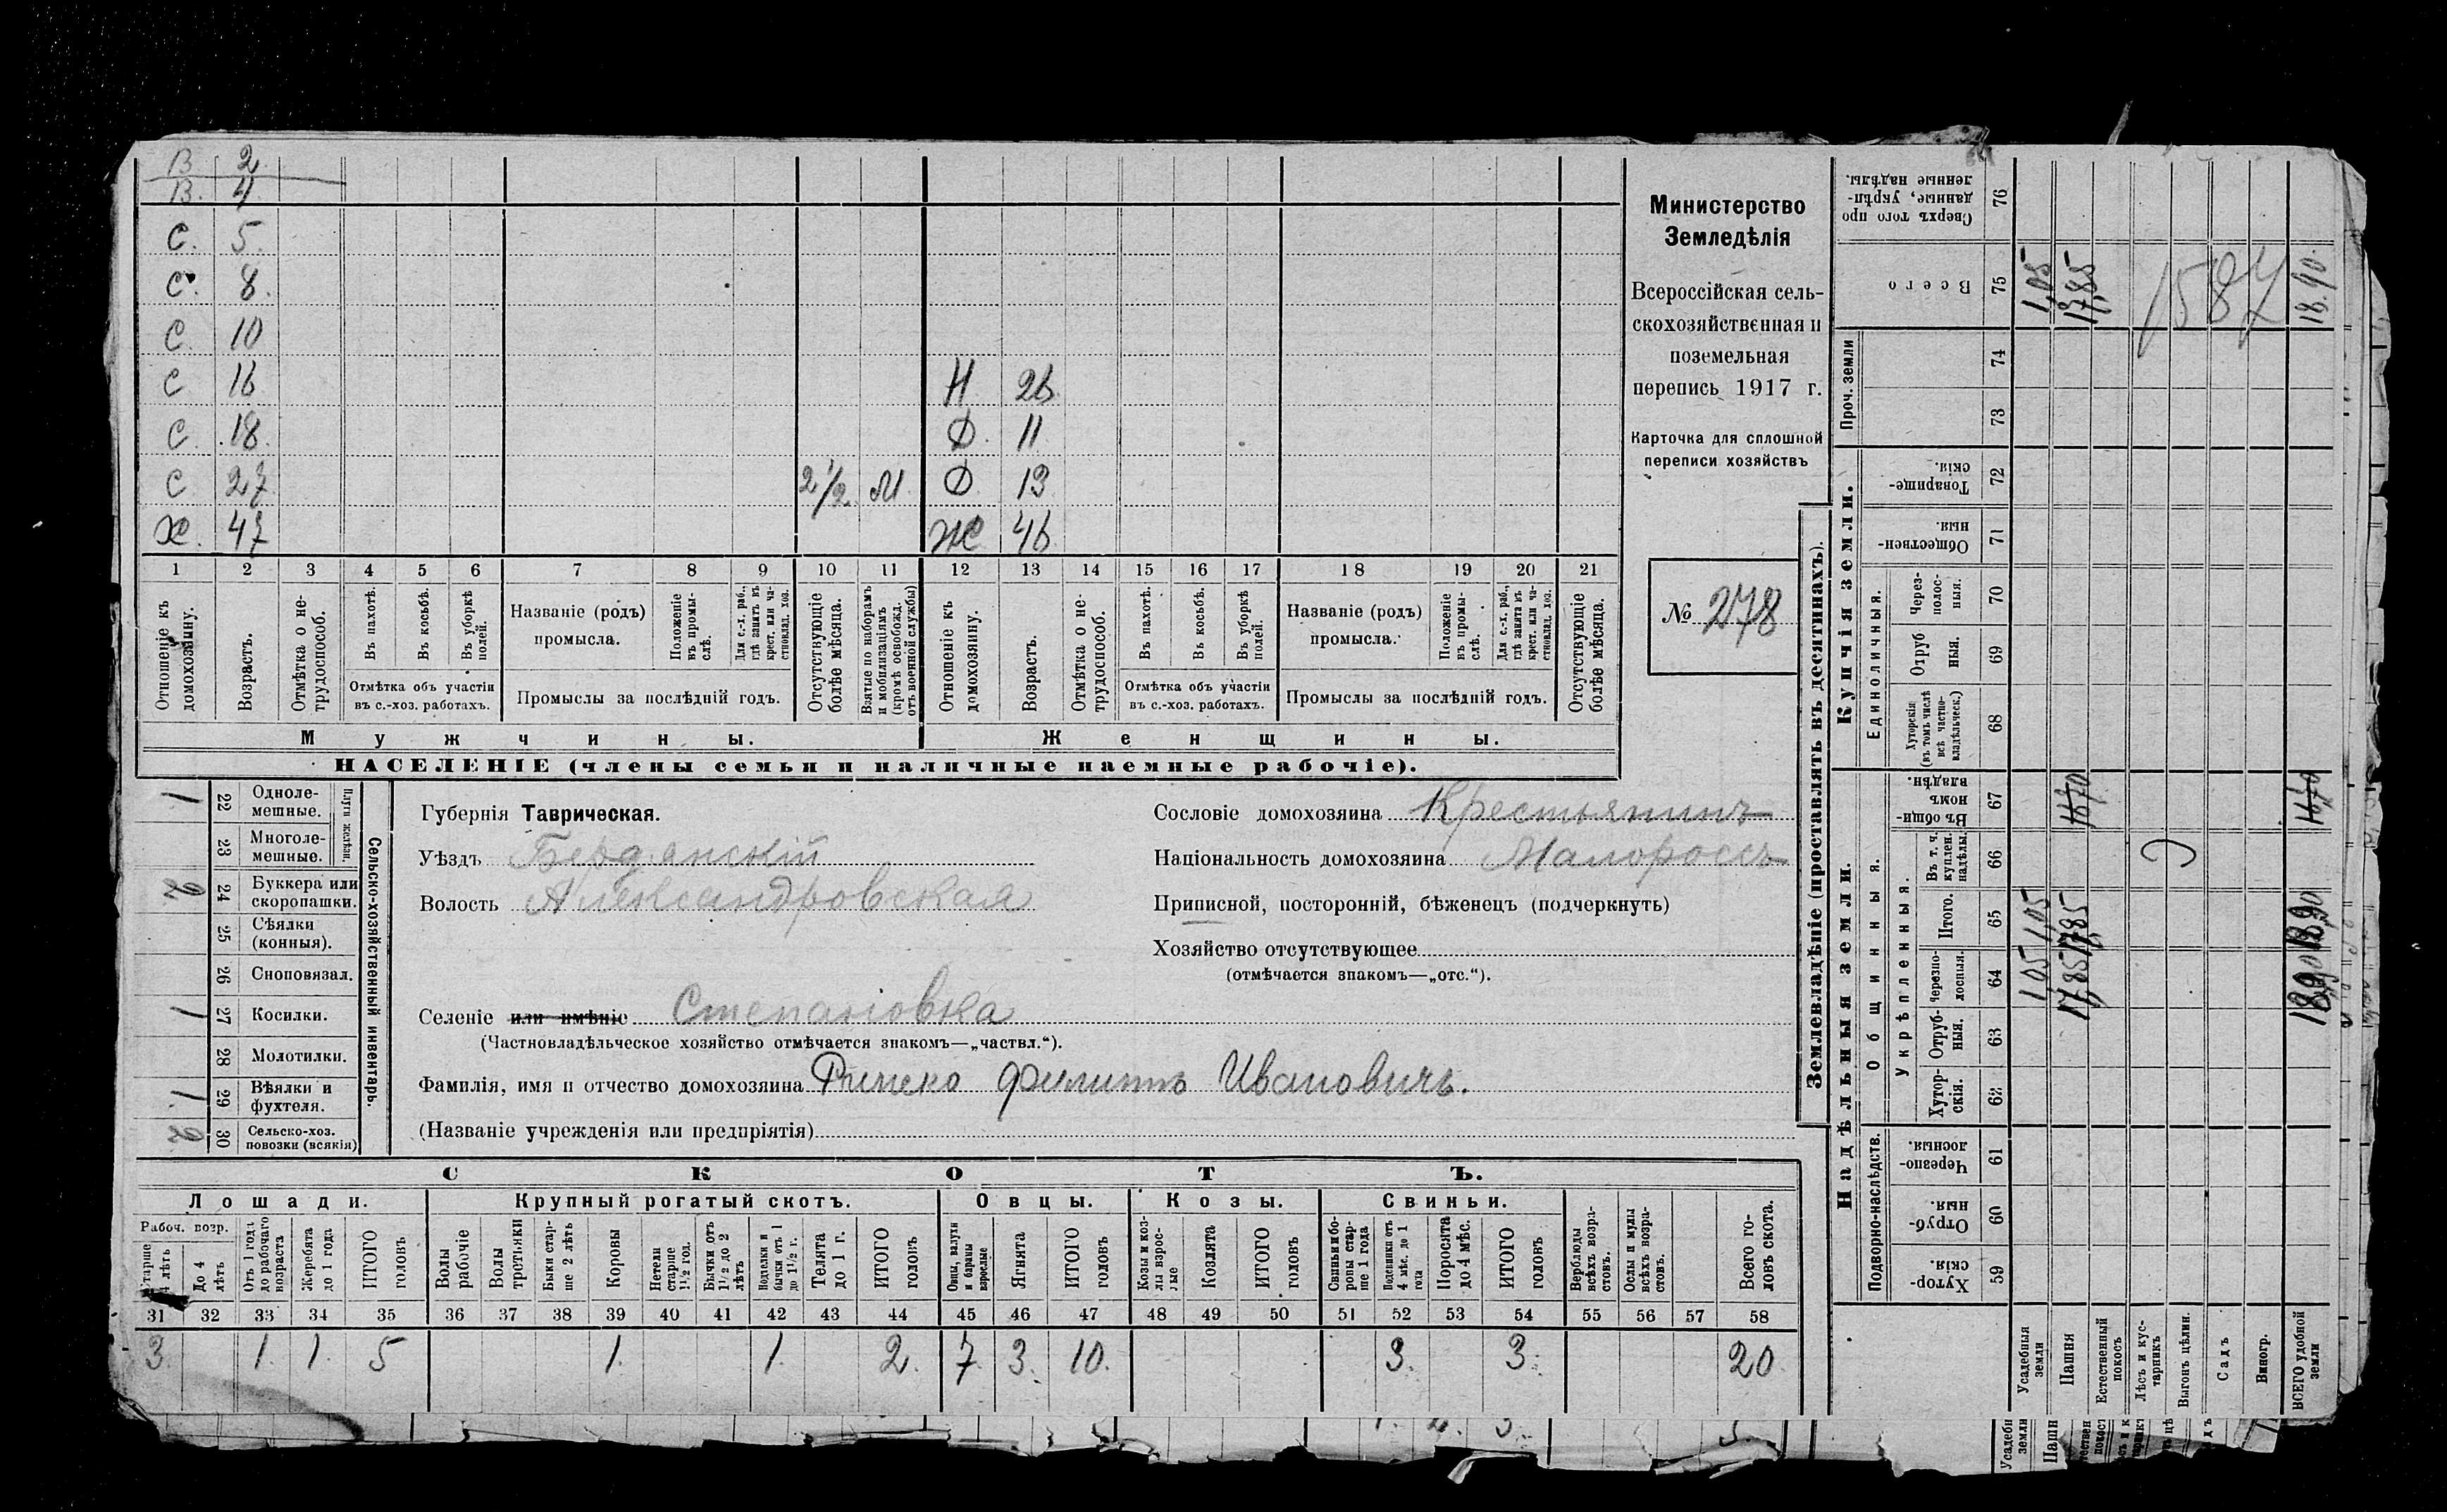 В 2
В. 4
С. 5.
С. 8.
С. 10
С 16 Н 26
С. 18. Ф. 11
С 27 2 1/2 М Ф. 13
Х. 47 Ж 46
1 2 3 4 5 6 7 8 9 10 11 12 13 14 15 16 17 18 19 20 21
Отношеніе къ домохозяину.
Возрастъ.
Отмѣтка о нетрудоспособ.
Въ пахотѣ.
Въ косьбѣ.
Въ уборкѣ полей.
Отмѣтка объ участіи
въ с.-хоз. работахъ.
Названіе (родъ)
промысла.
Положеніе въ промыслѣ.
Для с.-х. раб., гдѣ занятъ въ крест. или частновлад. хоз.
Промыслы за послѣдній годъ.
Отсутствующіе болѣе мѣсяца.
Взятые по наборамъ и мобилизаціямъ (кромѣ освобожд. отъ военной службы)
Отношеніе къ домохозяину.
Возрастъ.
Отмѣтка о нетрудоспособ.
Въ пахотѣ.
Въ косьбѣ.
Въ уборкѣ полей.
Отмѣтка объ участіи
въ с.-хоз. работахъ.
Названіе (родъ)
промысла.
Положеніе въ промыслѣ.
Для с.-х. раб., гдѣ занята въ крест. или частновлад. хоз.
Промыслы за послѣдній годъ.
Отсутствующіе болѣе мѣсяца.
Мужчины. Женщины.
НАСЕЛЕНІЕ (члены семьи и наличные наемные рабочіе).
Министерство
Земледѣлія
Всероссійская сель-
скохозяйственная и
поземельная
перепись 1917 г.
Карточка для сплошной
переписи хозяйствъ
№ 278
Сельско-хозяйственный инвентарь.
Плуги желѣзн.
1 22 Одноле-
мешные.
23 Многоле-
мешные.
2 24 Буккера или
скоропашки.
25 Сѣялки
(конныя).
26 Сноповязал.
1 27 Косилки.
28 Молотилки.
1. 29 Вѣялки и
фухтеля.
2 30 Сельско-хоз.
повозки (всякія)
Губернія Таврическая.
Уѣздъ Бердянскій
Волость Александровская
Сословіе домохозяина Крестьянинъ
Національность домохозяина Малороссъ
Приписной, посторонній, бѣженецъ (подчеркнуть)
Хозяйство отсутствующее
(отмѣчается знакомъ—„отс.“).
Селеніе или имѣніе Степановка
(Частновладѣльческое хозяйство отмѣчается знакомъ—„частвл.“).
Фамилія, имя и отчество домохозяина Филиппъ Ивановичъ.
(Названіе учрежденія или предпріятія)
СКОТЪ.
Лошади. Крупный рогатый скотъ. Овцы. Козы. Свиньи.
Рабоч. возр.
Старше 4 лѣтъ
До 4 лѣтъ
Отъ 1 года до рабочаго возраста
Жеребята до 1 года
ИТОГО головъ
Волы рабочіе
Волы третьяки
Быки старше 2 лѣтъ
Коровы
Нетели старше 1½ год.
Бычки отъ 1½ до 2 лѣтъ
Подтелки и бычки отъ 1 до 1½ г.
Телята до 1 г.
ИТОГО головъ
Овцы, валухи и бараны взрослые
Ягнята
ИТОГО головъ
Козы и козлы взрослые
Козлята
ИТОГО головъ
Свиньи и боровы старше 1 года
Подсвинки отъ 4 мѣс. до 1 года
Поросята до 4 мѣс.
ИТОГО головъ
Верблюды всѣхъ возрастовъ.
Ослы и мулы всѣхъ возрастовъ.
Всего головъ скота.
31 32 33 34 35 36 37 38 39 40 41 42 43 44 45 46 47 48 49 50 51 52 53 54 55 56 57 58
3 1. 1. 5 1. 1. 2. 7 3. 10. 3. 3. 20
Землевладѣніе (проставлять въ десятинахъ).
Надѣльныя земли. Купчія земли. Проч. земли
Подворно-наслѣдств. Общинныя. Единоличныя.
Укрѣпленныя.
Хуторскія. 59
Отрубныя. 60
Черезполосныя. 61
Хуторскія. 62
Отрубныя. 63
Черезполосныя. 64
Итого. 65
Въ т. ч. куплен. надѣлы. 66
Въ общинномъ владѣн. 67
Хуторскія (въ томъ числѣ всѣ частновладѣльческ.) 68
Отрубныя. 69
Черезполосныя. 70
Общественныя. 71
Товарищескія. 72
73
74
Всего 75
Сверхъ того проданные, укрѣпленные надѣлы. 76
Усадебныя земли 1,05 1,05 1,05
Пашня 17,85 17,85 16,70 17,85
Естественный покосъ
Лѣсъ и кустарникъ
Выгонъ цѣлин.
Садъ
Виногр.
ВСЕГО удобной земли 18,90 18,90 16,70 18.90.
1587